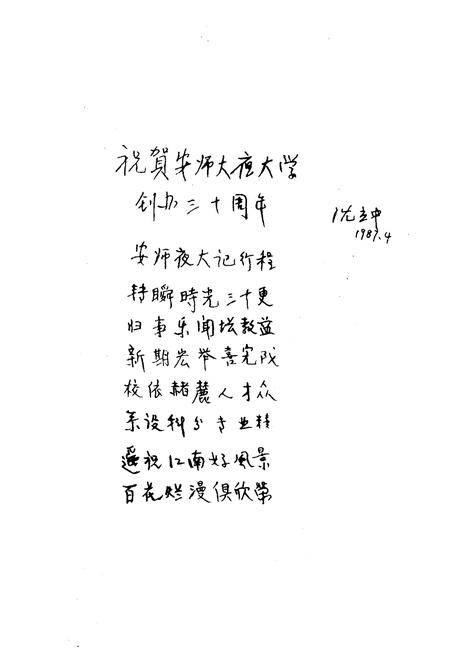 祝賀安师大夜大学
创办三十周年
沈立中
1987.4
安师夜大记行程
转瞬時光三十更
归事乐聞増教益
新期宏举喜完成
校依赭麓人才众
系设科分专业精
遥祝江南好風景
百花烂漫俱欣榮